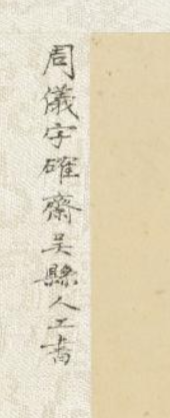 周儀字確齋吳縣人工書